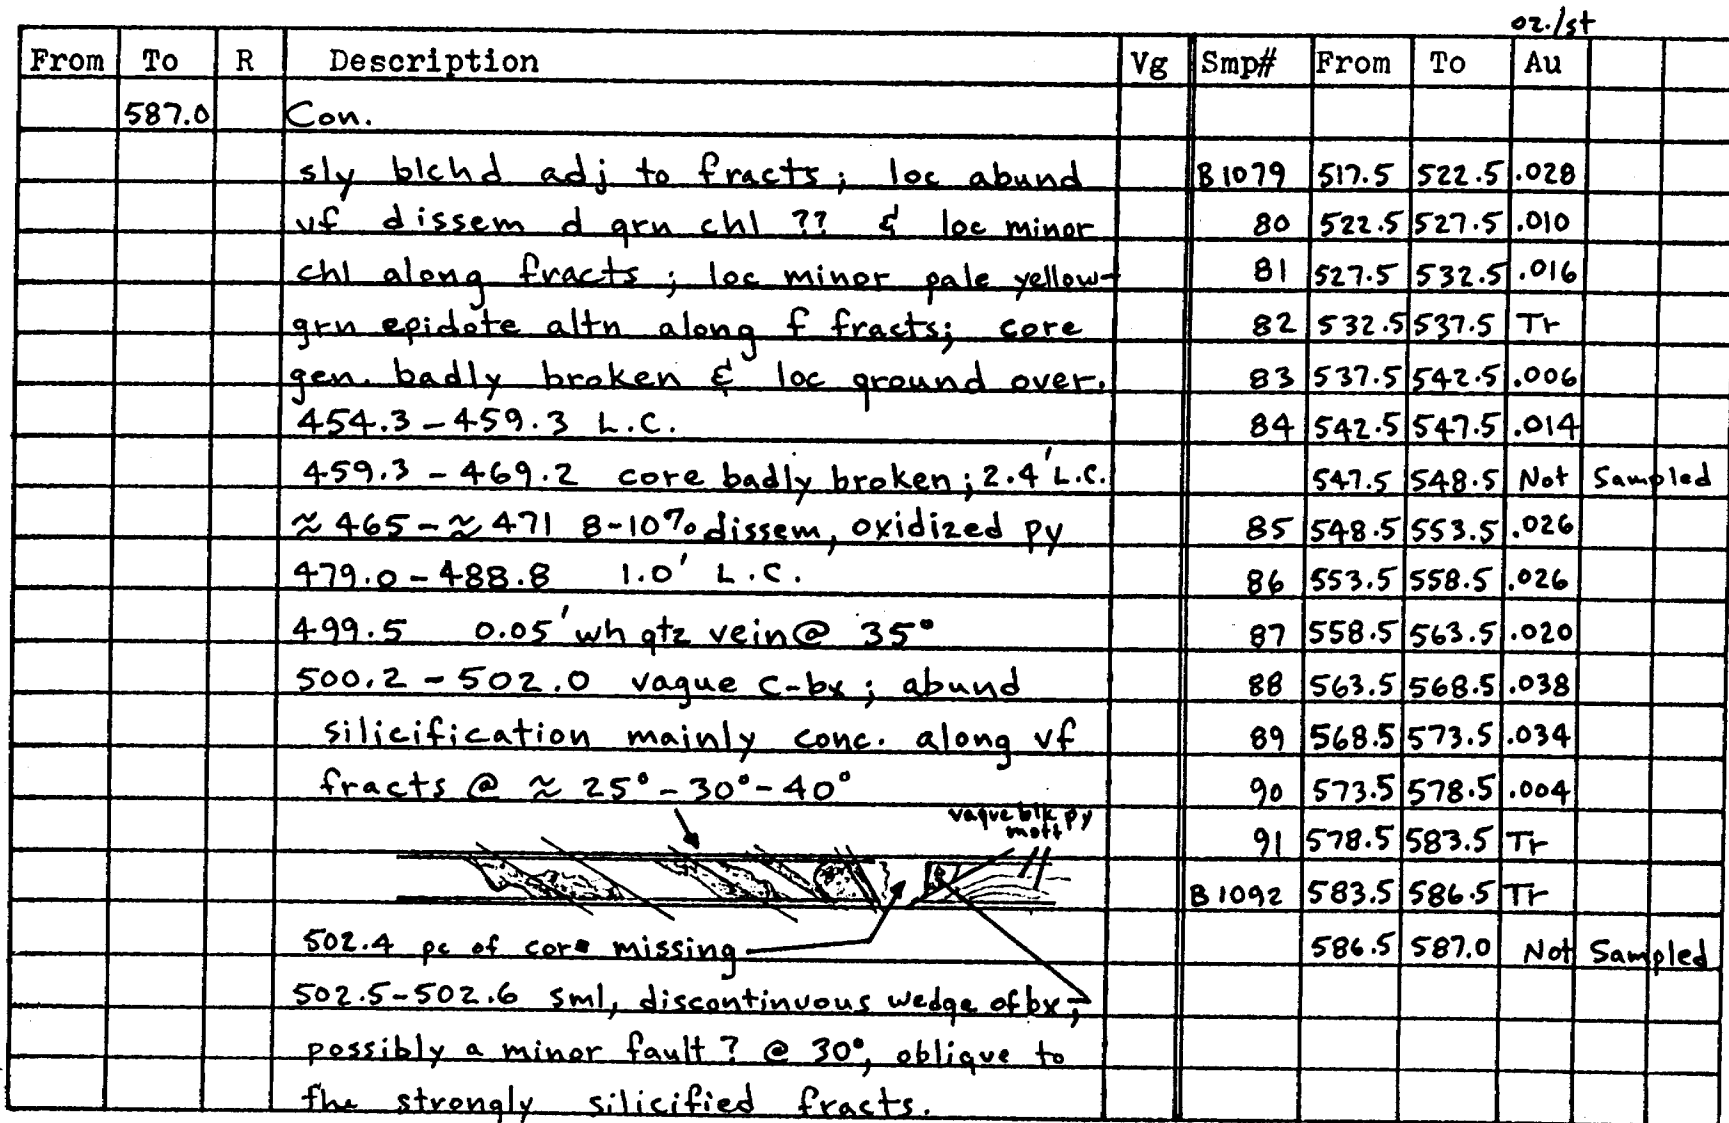 oz./st
From To R Description Vg Smp# From To Au
587.0 Con.
sly blchd adj to fracts; loc abund B1079 517.5 522.5 .028
vf dissem d grn chl ?? & loc minor 80 522.5 527.5 .010
chl along fracts; loc minor pale yellow- 81 527.5 532.5 .016
grn epidote altn along f fracts; core 82 532.5 537.5 Tr
gen. badly broken & loc ground over. 83 537.5 542.5 .006
454.3-459.3 L.C. 84 542.5 547.5 .014
459.3-469.2 core badly broken; 2.4' L.C. 547.5 548.5 Not Sampled
≈465-≈471 8-10% dissem, oxidized py 85 548.5 553.5 .026
479.0-488.8 1.0' L.C. 86 553.5 558.5 .026
499.5 0.05' wh qtz vein @ 35° 87 558.5 563.5 .020
500.2-502.0 vague c-bx; abund 88 563.5 568.5 .038
silicification mainly conc. along vf 89 568.5 573.5 .034
fracts @ ≈ 25°-30°-40° 90 573.5 578.5 .004
vague blk py
mott
91 578.5 583.5 Tr
B1092 583.5 586.5 Tr
502.4 pc of core missing 586.5 587.0 Not Sampled
502.5-502.6 sml, discontinuous wedge of bx;
possibly a minor fault? @ 30°, oblique to
the strongly silicified fracts.